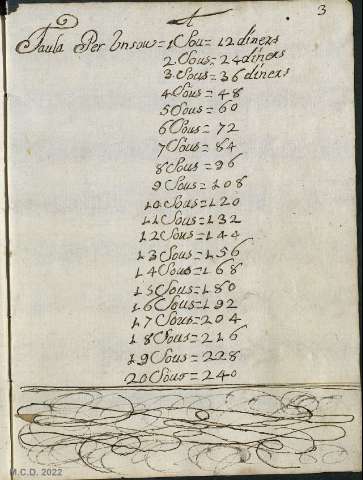 3
Taula Per Un sou = 1 Sou = 12 diners
2 Sous = 24 diners
3 Sous = 36 diners
4 Sous = 48
5 Sous = 60
6 Sous = 72
7 Sous = 84
8 Sous = 96
9 Sous = 108
10 Sous = 120
11 Sous = 132
12 Sous = 144
13 Sous = 156
14 Sous = 168
15 Sous = 180
16 Sous = 192
17 Sous = 204
18 Sous = 216
19 Sous = 228
20 Sous = 240
M.C.D. 2022